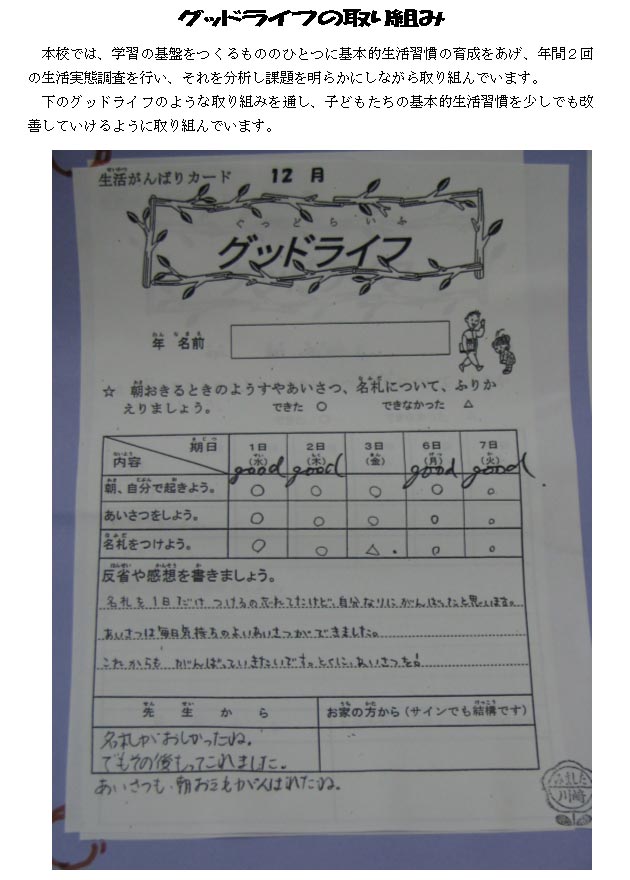 グッドライフの取り組み
本校では、学習の基盤をつくるもののひとつに基本的生活習慣の育成をあげ、年間２回
の生活実態調査を行い、それを分析し課題を明らかにしながら取り組んでいます。
下のグッドライフのような取り組みを通し、子どもたちの基本的生活習慣を少しでも改
善していけるように取り組んでいます。
せいかつ
生活がんばりカード 12 月
ぐっどらいふ
グッドライフ
ねん なまえ
年 名前
☆ 朝おきるときのようすやあいさつ、名札について、ふりか
えりましょう。 できた ○ できなかった △
期日 1日 2日 3日 6日 7日
内容 (水) (木) (金) (月) (火)
good good good good
朝、自分で起きよう。 ○ ○ ○ ○ ○
あいさつをしよう。 ○ ○ ○ ○ ○
名札をつけよう。 ○ ○ △ ○ ○
反省や感想を書きましょう。
名札を1日だけつけるの忘れてたけど、自分なりにがんばったと思います。
あいさつは毎日気持ちのよいあいさつができました。
これからもがんばっていきたいです。とくに、あいさつを!
先生から お家の方から(サインでも結構です)
名札がおしかったね。
でもその後もってこれました。
あいさつも、朝おきもがんばれたね。
みました
川崎